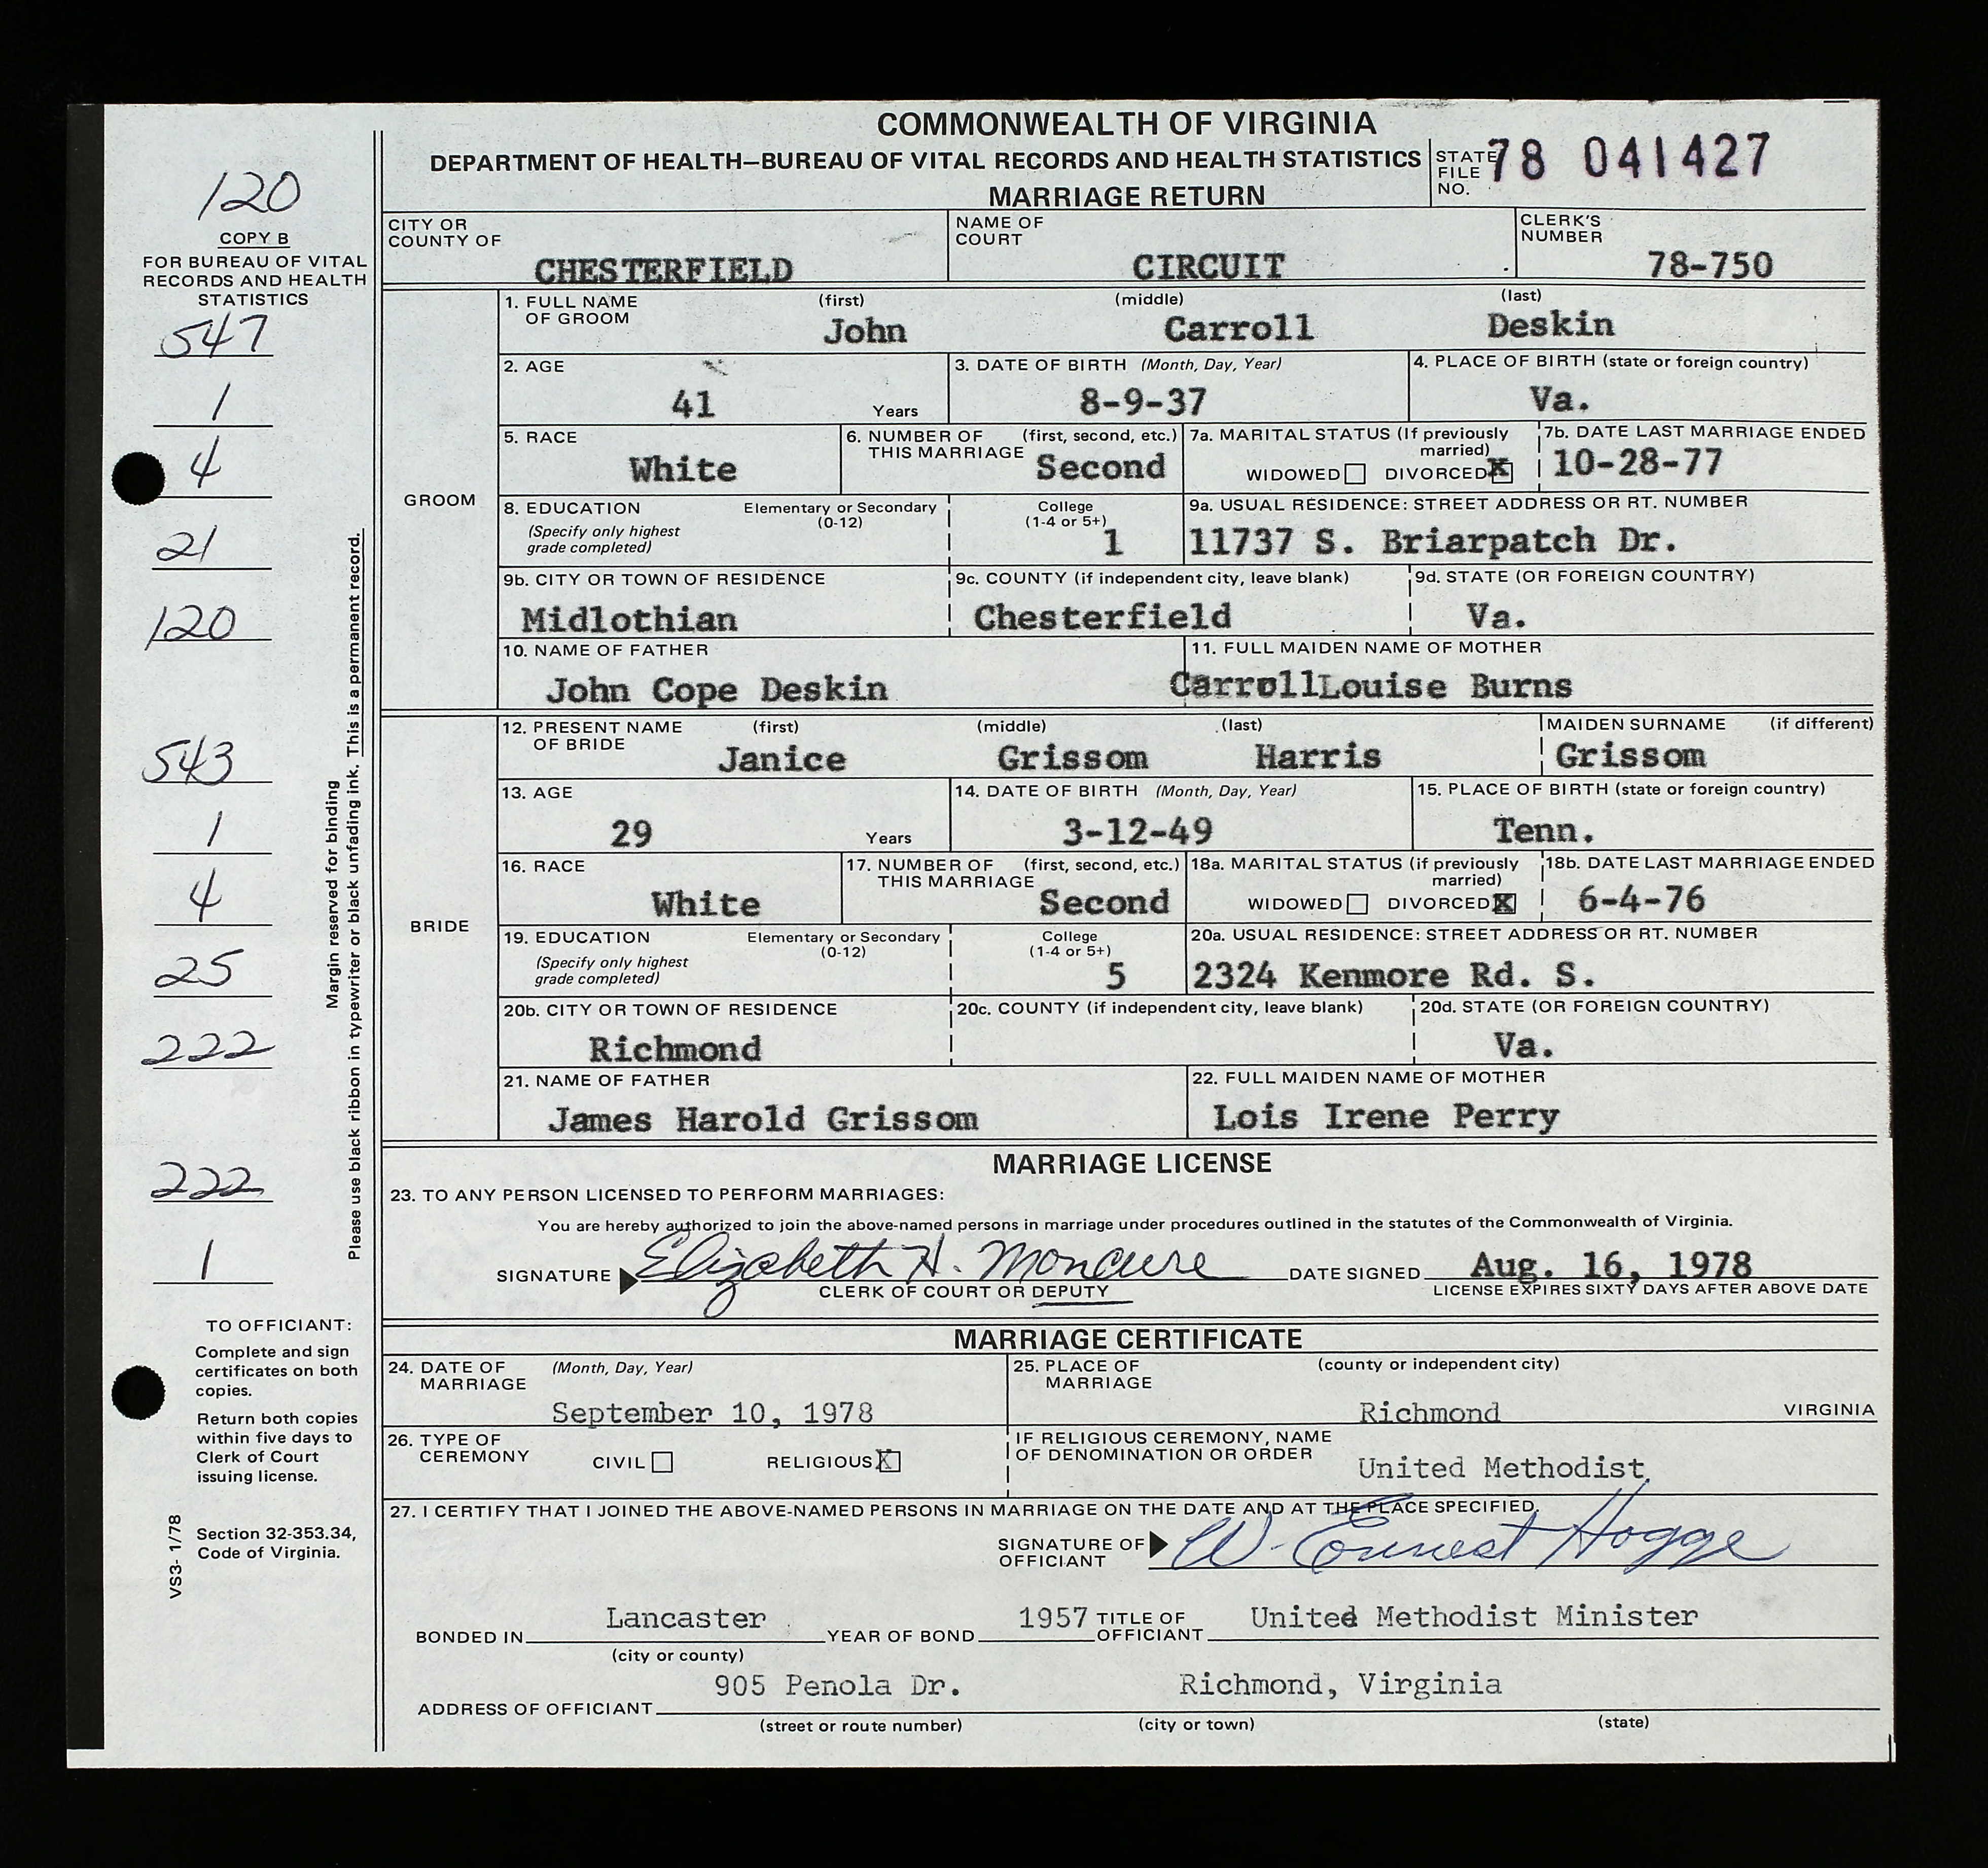 COMMONWEALTH OF VIRGINIA
DEPARTMENT OF HEALTH—BUREAU OF VITAL RECORDS AND HEALTH STATISTICS
MARRIAGE RETURN
STATE FILE NO. 78 041427
120
COPY B
FOR BUREAU OF VITAL
RECORDS AND HEALTH
STATISTICS
547
1
4
21
120
543
1
4
25
222
222
1
Margin reserved for binding
Please use black ribbon in typewriter or black unfading ink. This is a permanent record.
TO OFFICIANT:
Complete and sign
certificates on both
copies.
Return both copies
within five days to
Clerk of Court
issuing license.
Section 32-353.34,
Code of Virginia.
VS3- 1/78
CITY OR COUNTY OF CHESTERFIELD
NAME OF COURT CIRCUIT
CLERK'S NUMBER 78-750
GROOM
1. FULL NAME OF GROOM (first) (middle) (last)
John Carroll Deskin
2. AGE 41 Years
3. DATE OF BIRTH (Month, Day, Year) 8-9-37
4. PLACE OF BIRTH (state or foreign country) Va.
5. RACE White
6. NUMBER OF THIS MARRIAGE (first, second, etc.) Second
7a. MARITAL STATUS (If previously married) WIDOWED DIVORCED X
7b. DATE LAST MARRIAGE ENDED 10-28-77
8. EDUCATION (Specify only highest grade completed) Elementary or Secondary (0-12) College (1-4 or 5+) 1
9a. USUAL RESIDENCE: STREET ADDRESS OR RT. NUMBER 11737 S. Briarpatch Dr.
9b. CITY OR TOWN OF RESIDENCE Midlothian
9c. COUNTY (if independent city, leave blank) Chesterfield
9d. STATE (OR FOREIGN COUNTRY) Va.
10. NAME OF FATHER John Cope Deskin
11. FULL MAIDEN NAME OF MOTHER CarrollLouise Burns
BRIDE
12. PRESENT NAME OF BRIDE (first) (middle) (last) MAIDEN SURNAME (if different)
Janice Grissom Harris Grissom
13. AGE 29 Years
14. DATE OF BIRTH (Month, Day, Year) 3-12-49
15. PLACE OF BIRTH (state or foreign country) Tenn.
16. RACE White
17. NUMBER OF THIS MARRIAGE (first, second, etc.) Second
18a. MARITAL STATUS (if previously married) WIDOWED DIVORCED X
18b. DATE LAST MARRIAGE ENDED 6-4-76
19. EDUCATION (Specify only highest grade completed) Elementary or Secondary (0-12) College (1-4 or 5+) 5
20a. USUAL RESIDENCE: STREET ADDRESS OR RT. NUMBER 2324 Kenmore Rd. S.
20b. CITY OR TOWN OF RESIDENCE Richmond
20c. COUNTY (if independent city, leave blank)
20d. STATE (OR FOREIGN COUNTRY) Va.
21. NAME OF FATHER James Harold Grissom
22. FULL MAIDEN NAME OF MOTHER Lois Irene Perry
MARRIAGE LICENSE
23. TO ANY PERSON LICENSED TO PERFORM MARRIAGES:
You are hereby authorized to join the above-named persons in marriage under procedures outlined in the statutes of the Commonwealth of Virginia.
SIGNATURE Elizabeth H. Moncure DATE SIGNED Aug. 16, 1978
CLERK OF COURT OR DEPUTY LICENSE EXPIRES SIXTY DAYS AFTER ABOVE DATE
MARRIAGE CERTIFICATE
24. DATE OF MARRIAGE (Month, Day, Year) September 10, 1978
25. PLACE OF MARRIAGE (county or independent city) Richmond VIRGINIA
26. TYPE OF CEREMONY CIVIL RELIGIOUS X
IF RELIGIOUS CEREMONY, NAME OF DENOMINATION OR ORDER United Methodist
27. I CERTIFY THAT I JOINED THE ABOVE-NAMED PERSONS IN MARRIAGE ON THE DATE AND AT THE PLACE SPECIFIED.
SIGNATURE OF OFFICIANT W. Earnest Hogge
BONDED IN Lancaster YEAR OF BOND 1957 TITLE OF OFFICIANT United Methodist Minister
(city or county)
ADDRESS OF OFFICIANT 905 Penola Dr. Richmond, Virginia
(street or route number) (city or town) (state)